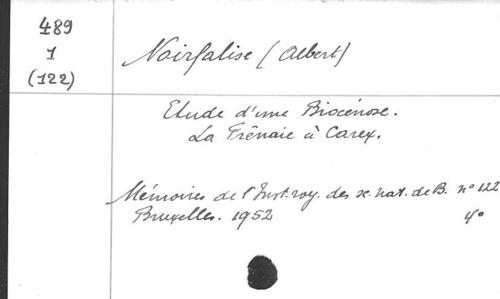 489
1
(122)
Noirfalise (Albert)
Etude d'une Biocénose.
La Frênaie à Carex.
Mémoires de l'Inst. roy. des sc. nat. de B. n° 122
Bruxelles. 1952
4°